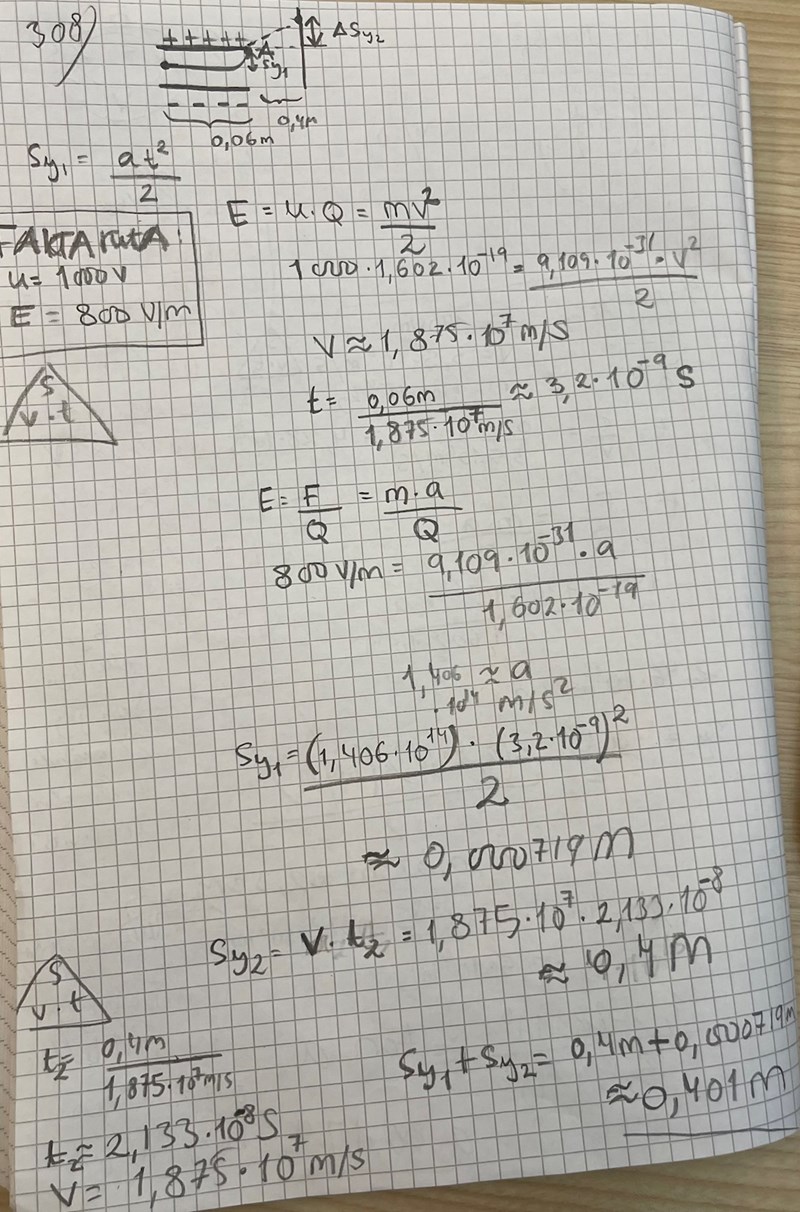 308)
+ + + + +
A
ΔSy₂
Sy₁
- - - -
0,4m
0,06m
Sy₁ = at²/2
FAKTAruta:
u= 1000V
E = 800 V/m
S
v · t
E = u · Q = mv²/2
1000 · 1,602 · 10⁻¹⁹ = 9,109 · 10⁻³¹ · v²/2
V ≈ 1,875 · 10⁷ m/s
t = 0,06m/1,875 · 10⁷ m/s ≈ 3,2 · 10⁻⁹ s
E = F/Q = m · a/Q
800 V/m = 9,109 · 10⁻³¹ · a/1,602 · 10⁻¹⁹
1,406 ≈ a
· 10¹⁴ m/s²
Sy₁ = (1,406 · 10¹⁴) · (3,2 · 10⁻⁹)²/2
≈ 0,000719 m
Sy₂ = v · t₂ = 1,875 · 10⁷ · 2,133 · 10⁻⁸
≈ 0,4 m
S
v · t
t₂ = 0,4m/1,875 · 10⁷ m/s
t₂ ≈ 2,133 · 10⁻⁸ s
V = 1,875 · 10⁷ m/s
Sy₁ + Sy₂ = 0,4m + 0,000719m
≈ 0,401 m